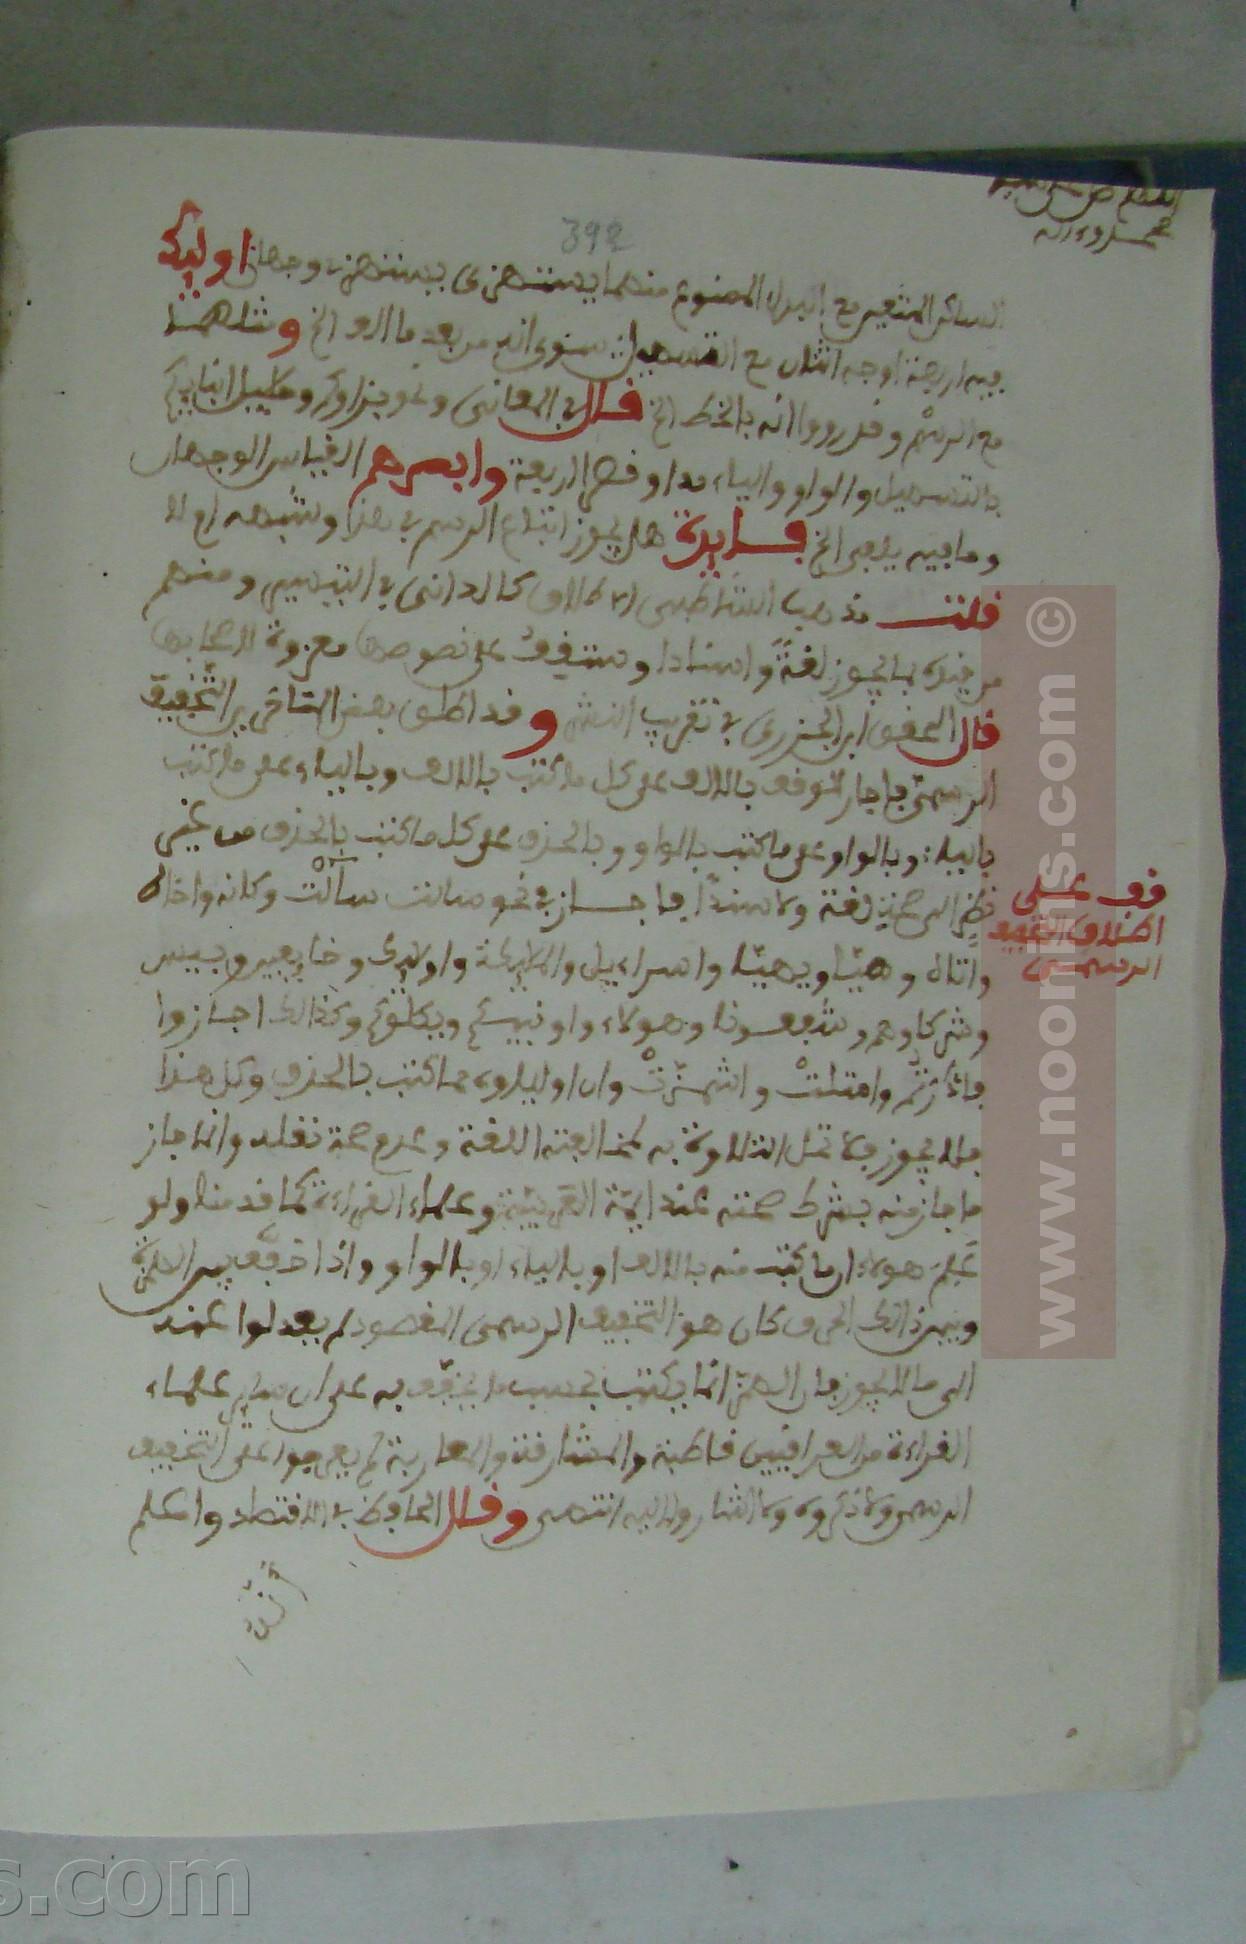 اللهم صل على سيدنا
محمد وءاله
392
الساكن المتغير مع البدل الممنوع منهما يستهزئ يستهزءوجهان اوليك
فيه اربعة اوجه اثنان مع التسهيل سوى انه من بعد ما الف الخ و مثلهما
مع الرسم وقد رووا انه بالخط الخ قال في المعاني ونحو جزاوكم وكليل ابنايكم
بالتسهيل والواو والياء مدا وقصر اربعة وابصرهم القياس الوجهان
وما فيه يلفى الخ فايدة هل يجوز اتباع الرسم في هذا وشبهه او لا
قلت مذهب الشاطبي الاطلاق كالداني في التيسير ومنهم
من قيده بما يجوز لغة واسنادا وستقف على نصوصها معزوة لاصحابها
قال المحقق ابن الجزري في تقريب النشر وقد اطلق بعض المتاخرين التخفيف
الرسمي فاجاز الوقف بالالف على كل ما كتب بالالف وبالياء على ما كتب
بالياء وبالواو على ما كتب بالواو وبالحذف على كل ما كتب بالحذف من غير
نظر الى صحته لغة ولا سندا فاجاز في نحو سالت سالت وكانه واخاه
و وهيا ويهيا واسراءيل والملايكة واوليك وخايفين وبييس
وشركاوهم وشفعونا وهولاء واونبيكم ويكلوكم وكذالك اجازوا
فادارتم وامتلت واشمزت وان اولياوه مما كتب بالحذف وكل هذا
مما لا يجوز ولا تحل التلاوة به لمخالفته اللغة وعدم صحة نقله وانما جاز
ما جاز منه بشرط صحته عند ايمة العربية وعلماء القراءة كما قدمنا ولو
علم هولاء ان ما كتب منه بالالف او بالياء او بالواو واذا خفف بين الهمزة
وبين ذالك الحرف كان هو التخفيف الرسمي المقصود لم يعدلوا عنه
الى ما لا يجوز فان الهمز انما يكتب بحسب ما يخفف به على ان ساير علماء
القراءة من العراقيين قاطبة والمشارقة والمغاربة لم يعرجوا على التخفيف
الرسمي ولا ذكروه ولا اشاروا اليه انتهى وقال الحافظ في الاقتصاد واعلم
انه
قف على
اطلاق التخفيف
الرسمي
www.noonlins.com ©
s.com